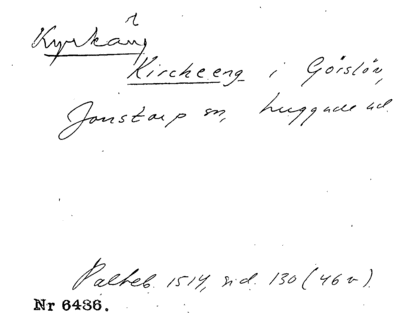 Kyrkäng
Kircheeng i Görslöv,
Jonstorp sn, Luggude hd.
Palteb. 1514, sid. 130 (46 v).
Nr 6486.